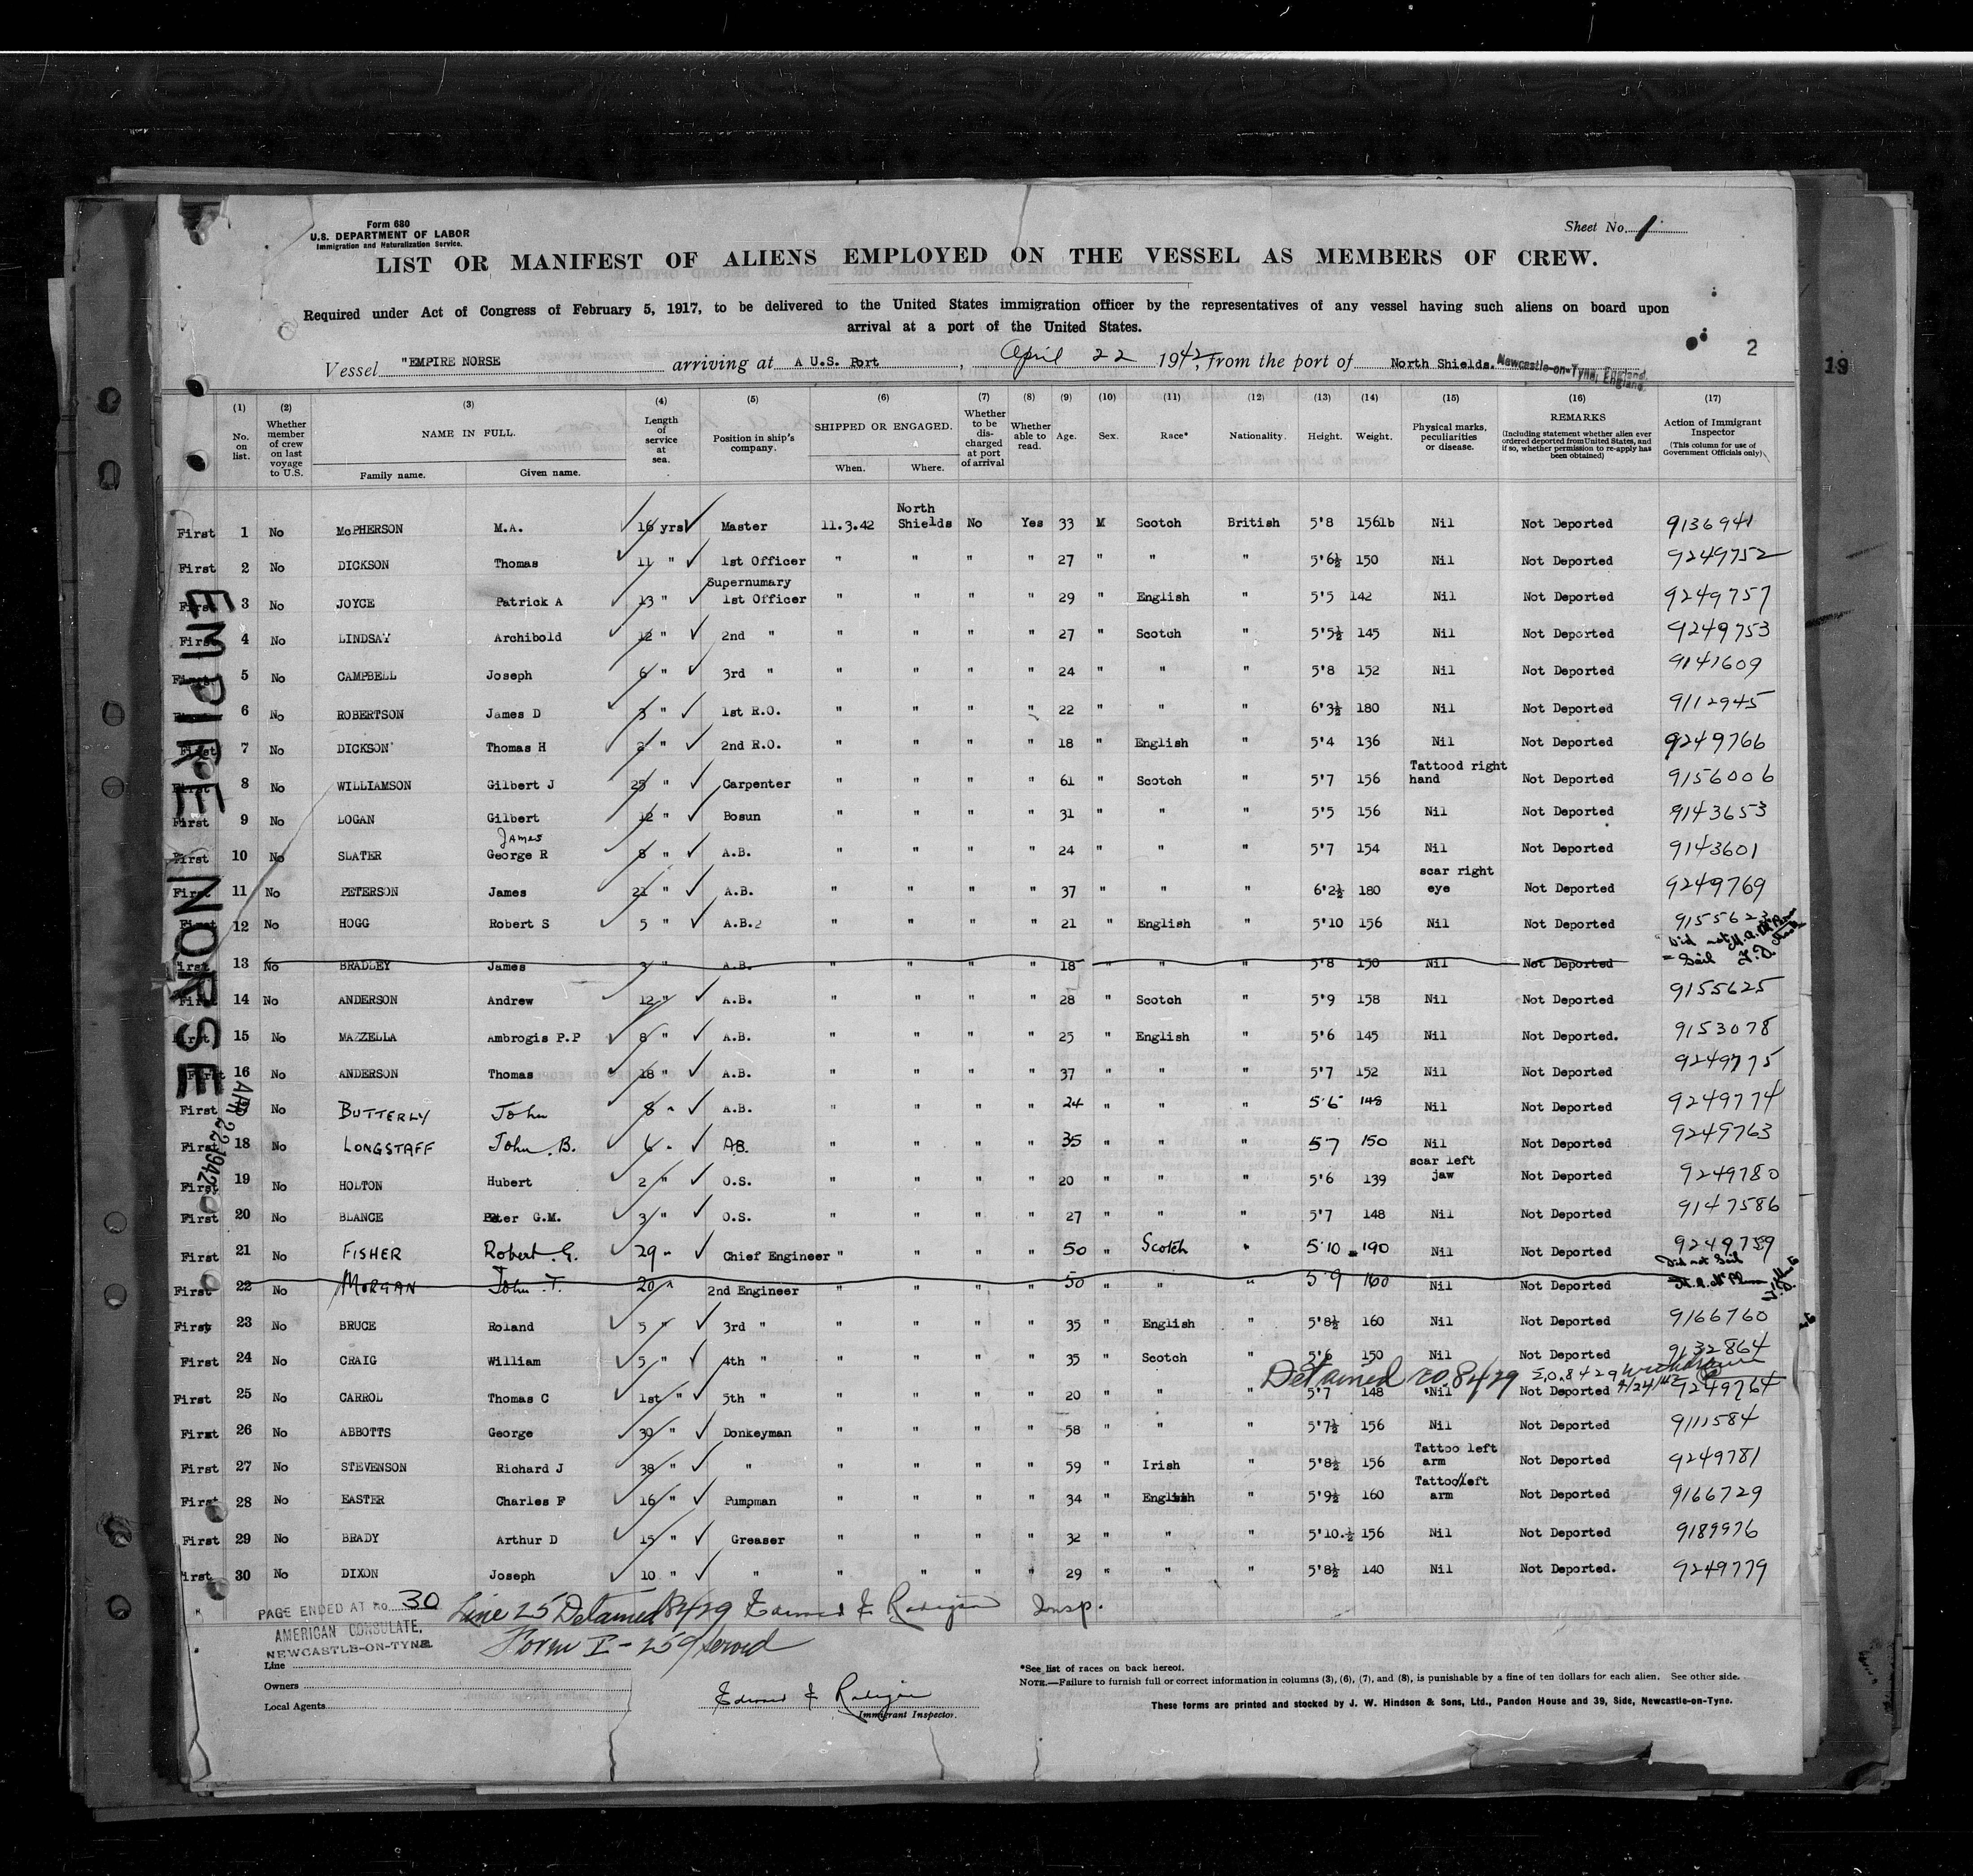 Form 680
U.S. DEPARTMENT OF LABOR
Immigration and Naturalization Service.
Sheet No. 1
LIST OR MANIFEST OF ALIENS EMPLOYED ON THE VESSEL AS MEMBERS OF CREW.
Required under Act of Congress of February 5, 1917, to be delivered to the United States immigration officer by the representatives of any vessel having such aliens on board upon
arrival at a port of the United States.
2
19
Vessel "EMPIRE NORSE arriving at A U.S. Port, April 22 1942, from the port of North Shields. Newcastle-on-Tyne, England.
(1) (2) (3) (4) (5) (6) (7) (8) (9) (10) (11) (12) (13) (14) (15) (16) (17)
No. on list.
Whether member of crew on last voyage to U.S.
NAME IN FULL.
Family name. Given name.
Length of service at sea.
Position in ship's company.
SHIPPED OR ENGAGED.
When. Where.
Whether to be discharged at port of arrival
Whether able to read.
Age. Sex. Race* Nationality. Height. Weight.
Physical marks, peculiarities or disease.
REMARKS
(Including statement whether alien ever ordered deported from United States, and if so, whether permission to re-apply has been obtained)
Action of Immigrant Inspector
(This column for use of Government Officials only)
First 1 No McPHERSON M.A. 16 yrs Master 11.3.42 North Shields No Yes 33 M Scotch British 5'8 156lb Nil Not Deported 9136941
First 2 No DICKSON Thomas 11 " 1st Officer " " " " 27 " " " 5'6½ 150 Nil Not Deported 9249752
First 3 No JOYCE Patrick A 13 " Supernumary 1st Officer " " " " 29 " English " 5'5 142 Nil Not Deported 9249757
First 4 No LINDSAY Archibold 12 " 2nd " " " " " 27 " Scotch " 5'5½ 145 Nil Not Deported 9249753
First 5 No CAMPBELL Joseph 6 " 3rd " " " " " 24 " " " 5'8 152 Nil Not Deported 9141609
First 6 No ROBERTSON James D 3 " 1st R.O. " " " " 22 " " " 6'3½ 180 Nil Not Deported 9112945
First 7 No DICKSON Thomas H 2 " 2nd R.O. " " " " 18 " English " 5'4 136 Nil Not Deported 9249766
First 8 No WILLIAMSON Gilbert J 25 " Carpenter " " " " 61 " Scotch " 5'7 156 Tattood right hand Not Deported 9156006
First 9 No LOGAN Gilbert 12 " Bosun " " " " 31 " " " 5'5 156 Nil Not Deported 9143653
First 10 No SLATER James George R 8 " A.B. " " " " 24 " " " 5'7 154 Nil Not Deported 9143601
First 11 No PETERSON James 21 " A.B. " " " " 37 " " " 6'2½ 180 scar right eye Not Deported 9249769
First 12 No HOGG Robert S 5 " A.B. " " " " 21 " English " 5'10 156 Nil Not Deported 9155623
First 13 No BRADLEY James 3 " A.B. " " " " 18 " " " 5'8 150 Nil Not Deported Did not Sail
First 14 No ANDERSON Andrew 12 " A.B. " " " " 28 " Scotch " 5'9 158 Nil Not Deported 9155625
First 15 No MAZZELLA Ambrogis P.P 8 " A.B. " " " " 25 " English " 5'6 145 Nil Not Deported. 9153078
First 16 No ANDERSON Thomas 18 " A.B. " " " " 37 " " " 5'7 152 Nil Not Deported 9249775
First No BUTTERLY John 8 " A.B. " " " " 24 " " " 5'6 148 Nil Not Deported 9249774
First 18 No LONGSTAFF John. B. 6 " A.B. " " " " 35 " " " 5 7 150 Nil Not Deported 9249763
First 19 No HOLTON Hubert 2 " O.S. " " " " 20 " " " 5'6 139 scar left jaw Not Deported 9249780
First 20 No BLANCE Peter G.M. 3 " O.S. " " " " 27 " " " 5'7 148 Nil Not Deported 9147586
First 21 No FISHER Robert G. 29 " Chief Engineer " " " " 50 " Scotch " 5'10 190 Nil Not Deported 9249759
First 22 No MORGAN John T. 20 " 2nd Engineer " " " " 50 " " " 5 9 160 Nil Not Deported Did not Sail
First 23 No BRUCE Roland 5 " 3rd " " " " " 35 " English " 5'8½ 160 Nil Not Deported 9166760
First 24 No CRAIG William 5 " 4th " " " " " 35 " Scotch " 5'6 150 Nil Not Deported 9132864
Detained S.O. 8429 S.O. 8429 Withdrawn 4/24/42
First 25 No CARROL Thomas C 1st " 5th " " " " " 20 " " " 5'7 148 Nil Not Deported 9249764
First 26 No ABBOTTS George 30 " Donkeyman " " " " 58 " " " 5'7½ 156 Nil Not Deported 9111584
First 27 No STEVENSON Richard J 38 " " " " " " 59 " Irish " 5'8½ 156 Tattoo left arm Not Deported 9249781
First 28 No EASTER Charles F 16 " Pumpman " " " " 34 " English " 5'9½ 160 Tattoo left arm Not Deported 9166729
First 29 No BRADY Arthur D 15 " Greaser " " " " 32 " " " 5'10.½ 156 Nil Not Deported 9189976
First 30 No DIXON Joseph 10 " " " " " " 29 " " " 5'8½ 140 Nil Not Deported. 9249779
EMPIRE NORSE
APR 22 1942
PAGE ENDED AT No. 30
AMERICAN CONSULATE,
NEWCASTLE-ON-TYNE
Line 25 Detained 8429 Edward F Insp.
Form I-259 served
Line
Owners
Local Agents
Edward F
Immigrant Inspector.
*See list of races on back hereof.
NOTE.—Failure to furnish full or correct information in columns (3), (6), (7), and (8), is punishable by a fine of ten dollars for each alien. See other side.
These forms are printed and stocked by J. W. Hindson & Sons, Ltd., Pandon House and 39, Side, Newcastle-on-Tyne.